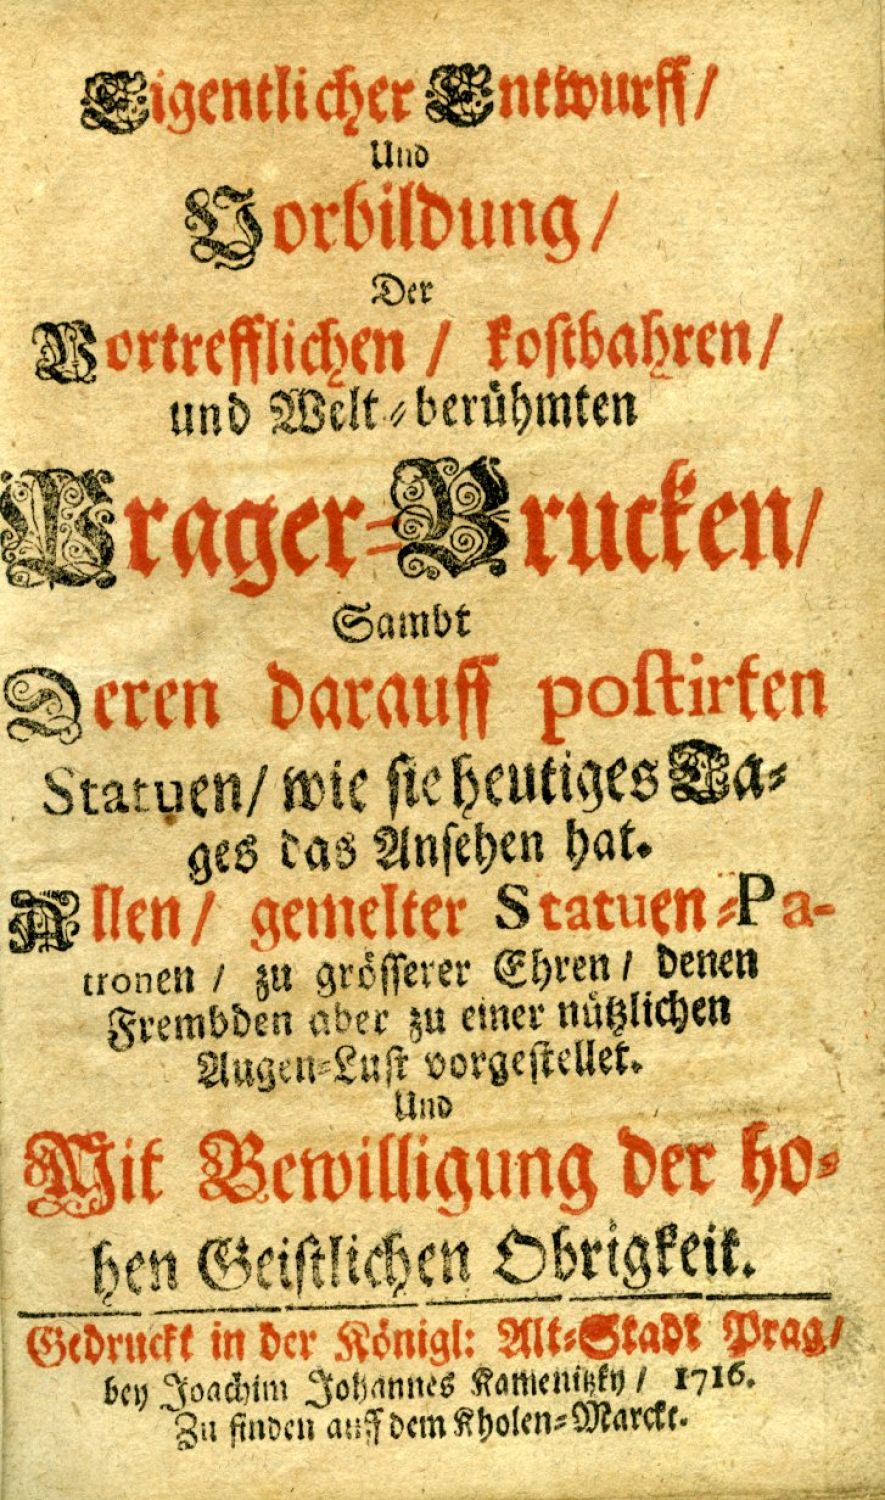 Eigentlicher Entwurff/
Und
Vorbildung/
Der
Vortrefflichen / kostbahren/
und Welt-berühmten
Prager-Brucken/
Sambt
Deren darauff postirten
Statuen/ wie sie heutiges Ta-
ges das Ansehen hat.
Allen/ gemelter Statuen-Pa-
tronen / zu grösserer Ehren / denen
Frembden aber zu einer nützlichen
Augen-Lust vorgestellet.
Und
Mit Bewilligung der ho-
hen Geistlichen Obrigkeit.
Gedruckt in der Königl: Alt-Stadt Prag/
bey Joachim Johannes Kamenitzky / 1716.
Zu finden auff dem Kholen-Marckt.